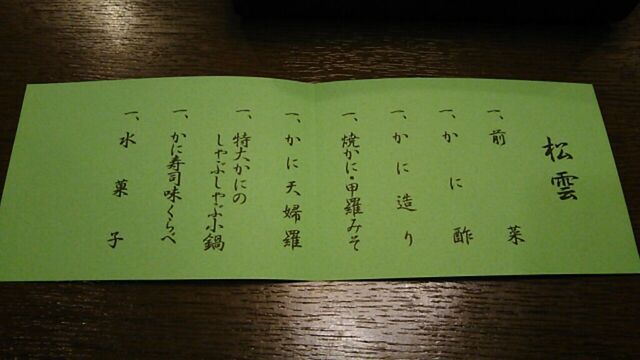 松雲
一、前菜
一、かに酢
一、かに造り
一、焼かに・甲羅みそ
一、かに天婦羅
一、特大かにの
しゃぶしゃぶ小鍋
一、かに寿司味くらべ
一、水菓子